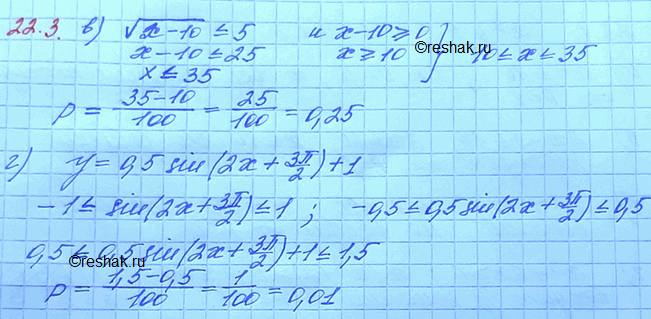 22.3. в) √x-10 ≤ 5 и x-10 ≥ 0
x-10 ≤ 25 x ≥ 10 ] 10 ≤ x ≤ 35
x ≤ 35
©reshak.ru
P = 35-10/100 = 25/100 = 0,25
г) y = 0,5 sin(2x + 3π/2) + 1
-1 ≤ sin(2x + 3π/2) ≤ 1 ; -0,5 ≤ 0,5 sin(2x + 3π/2) ≤ 0,5
0,5 ≤ 0,5 sin(2x + 3π/2) + 1 ≤ 1,5
©reshak.ru
P = 1,5-0,5/100 = 1/100 = 0,01